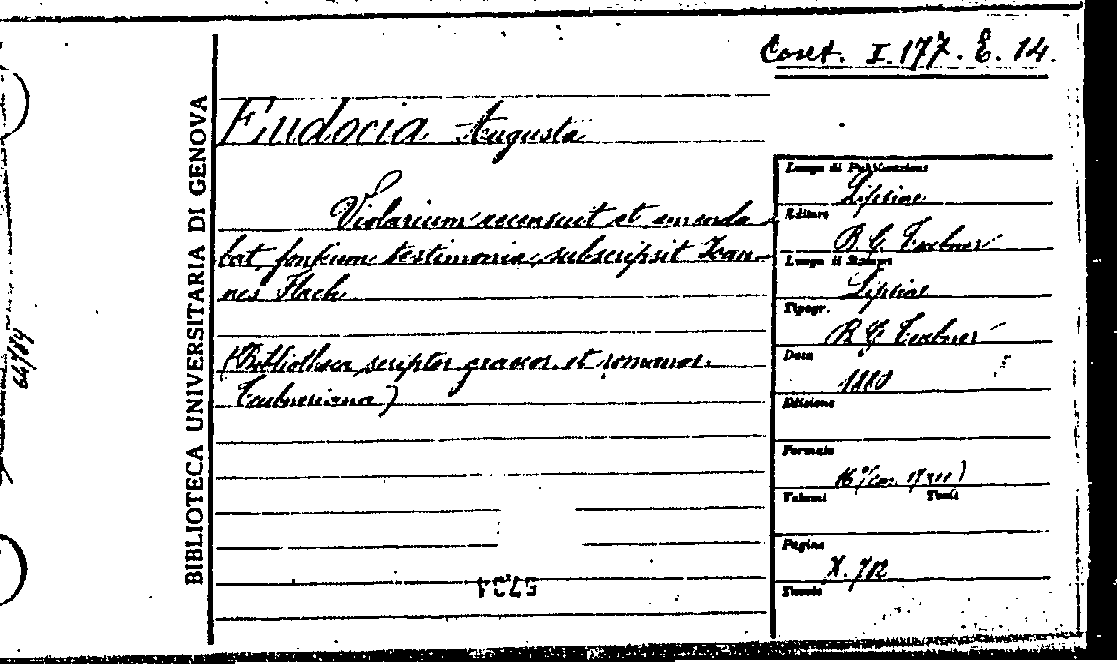 Coret. I.177.E.14.
BIBLIOTECA UNIVERSITARIA DI GENOVA
Eudocia Augusta
Violarium recensuit et emenda
bat, fontium testimonia, subscripsit Ioan-
nes Flach
(Bibliotheca scriptor graecor. et romanor.
Teubneriana)
Luogo di Pubblicazione
Lipsiae
Editore
B. G. Teubner
Luogo di Stampa
Lipsiae
Tipogr.
B. G. Teubner
Data
1880
Edizione
Formato
16°
Volumi Tomi
Pagine
X. 782
Tavole
64/84